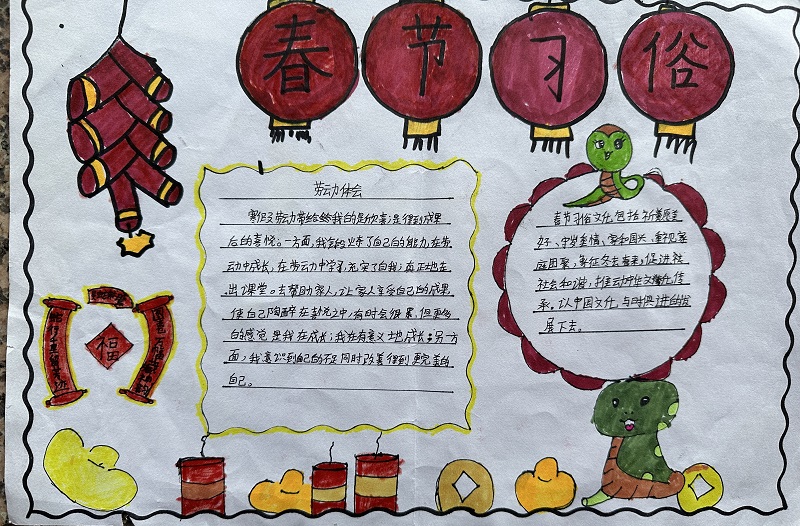 春节习俗
劳动体会
寒假劳动带给我的是欣喜,是得到成果
后的喜悦。一方面,我锻炼了自己的能力,在劳
动中成长,在劳动中学习,充实了自我;真正地走
出课堂。去帮助家人,让家人享受自己的成果
使自己陶醉在喜悦之中,有时会很累,但更多
的感觉是我在成长;我在有意义地成长;另一方
面,我意识到自己的不足同时改善得到更完美的
自己。
春节习俗文化包括祈美愿
好、守岁、亲情、家和国兴、重视家
庭团聚、寄在冬去春来,促进社
社会和谐,推动中华文化传
承。让中国文化,与时俱进的发
展下去。
福